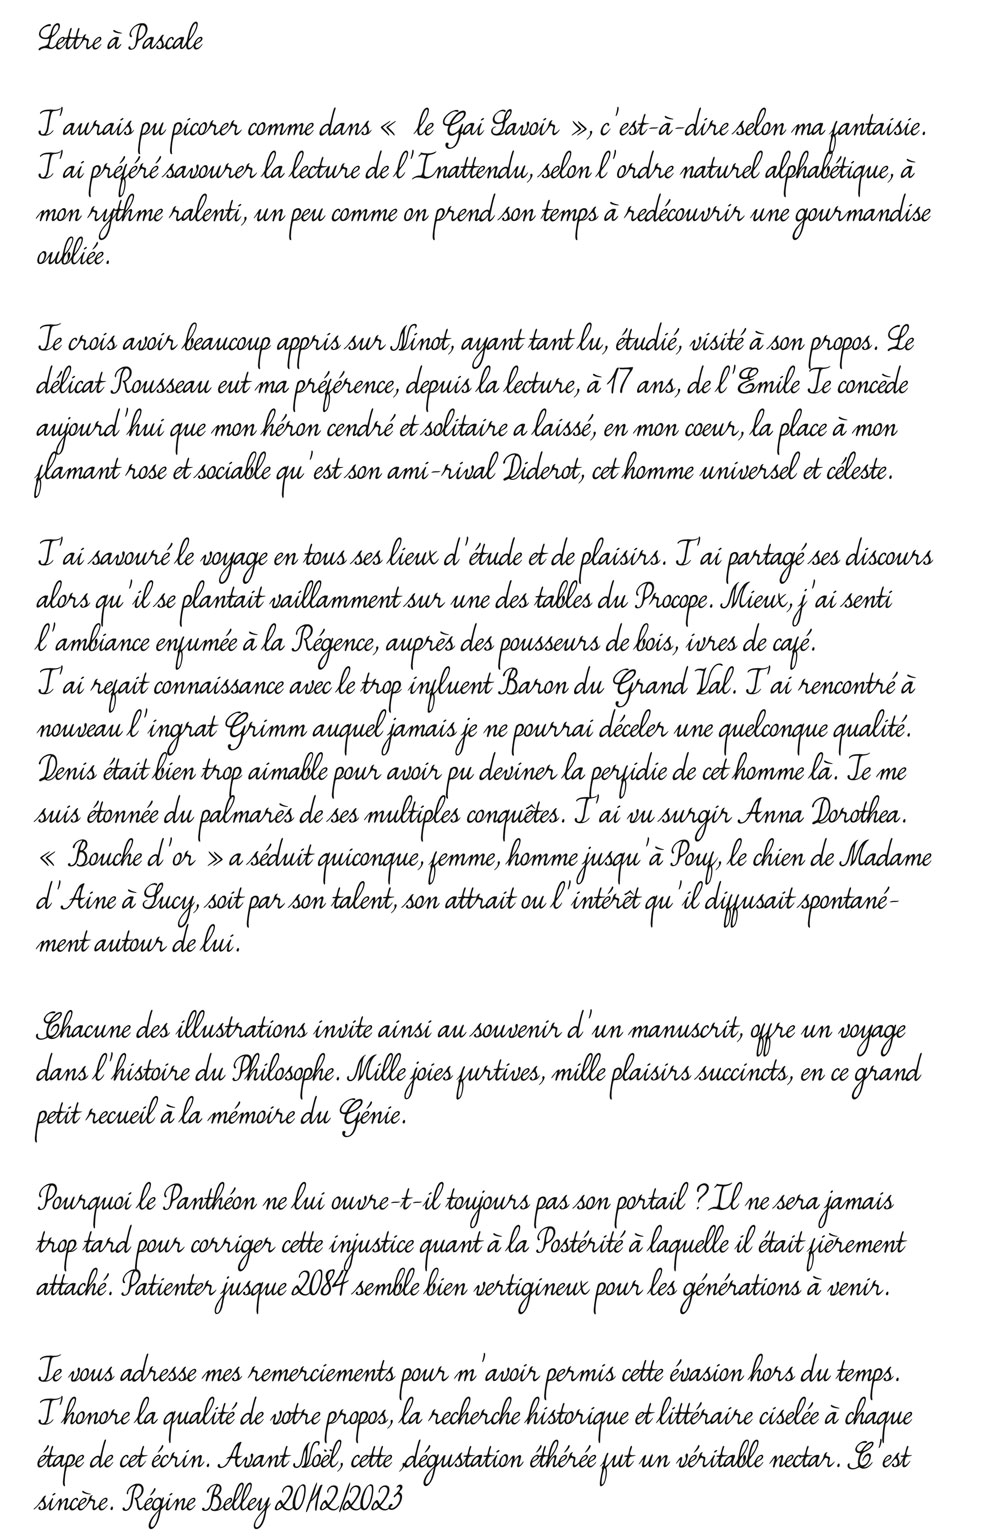 Lettre à Pascale
J'aurais pu picorer comme dans « le Gai Savoir », c'est-à-dire selon ma fantaisie.
J'ai préféré savourer la lecture de l'Inattendu, selon l'ordre naturel alphabétique, à
mon rythme ralenti, un peu comme on prend son temps à redécouvrir une gourmandise
oubliée.
Je crois avoir beaucoup appris sur Ninot, ayant tant lu, étudié, visité à son propos. Le
délicat Rousseau eut ma préférence, depuis la lecture, à 17 ans, de l'Emile Je concède
aujourd'hui que mon héron cendré et solitaire a laissé, en mon coeur, la place à mon
flamant rose et sociable qu'est son ami-rival Diderot, cet homme universel et céleste.
J'ai savouré le voyage en tous ses lieux d'étude et de plaisirs. J'ai partagé ses discours
alors qu'il se plantait vaillamment sur une des tables du Procope. Mieux, j'ai senti
l'ambiance enfumée à la Régence, auprès des pousseurs de bois, ivres de café.
J'ai refait connaissance avec le trop influent Baron du Grand Val. J'ai rencontré à
nouveau l'ingrat Grimm auquel jamais je ne pourrai déceler une quelconque qualité.
Denis était bien trop aimable pour avoir pu deviner la perfidie de cet homme là. Je me
suis étonnée du palmarès de ses multiples conquêtes. J'ai vu surgir Anna Dorothea.
« Bouche d'or » a séduit quiconque, femme, homme jusqu'à Pouf, le chien de Madame
d'Aine à Sucy, soit par son talent, son attrait ou l'intérêt qu'il diffusait spontané-
ment autour de lui.
Chacune des illustrations invite ainsi au souvenir d'un manuscrit, offre un voyage
dans l'histoire du Philosophe. Mille joies furtives, mille plaisirs succincts, en ce grand
petit recueil à la mémoire du Génie.
Pourquoi le Panthéon ne lui ouvre-t-il toujours pas son portail ? Il ne sera jamais
trop tard pour corriger cette injustice quant à la Postérité à laquelle il était fièrement
attaché. Patienter jusque 2084 semble bien vertigineux pour les générations à venir.
Je vous adresse mes remerciements pour m'avoir permis cette évasion hors du temps.
J'honore la qualité de votre propos, la recherche historique et littéraire ciselée à chaque
étape de cet écrin. Avant Noël, cette dégustation éthérée fut un véritable nectar. C'est
sincère. Régine Belley 20/12/2023